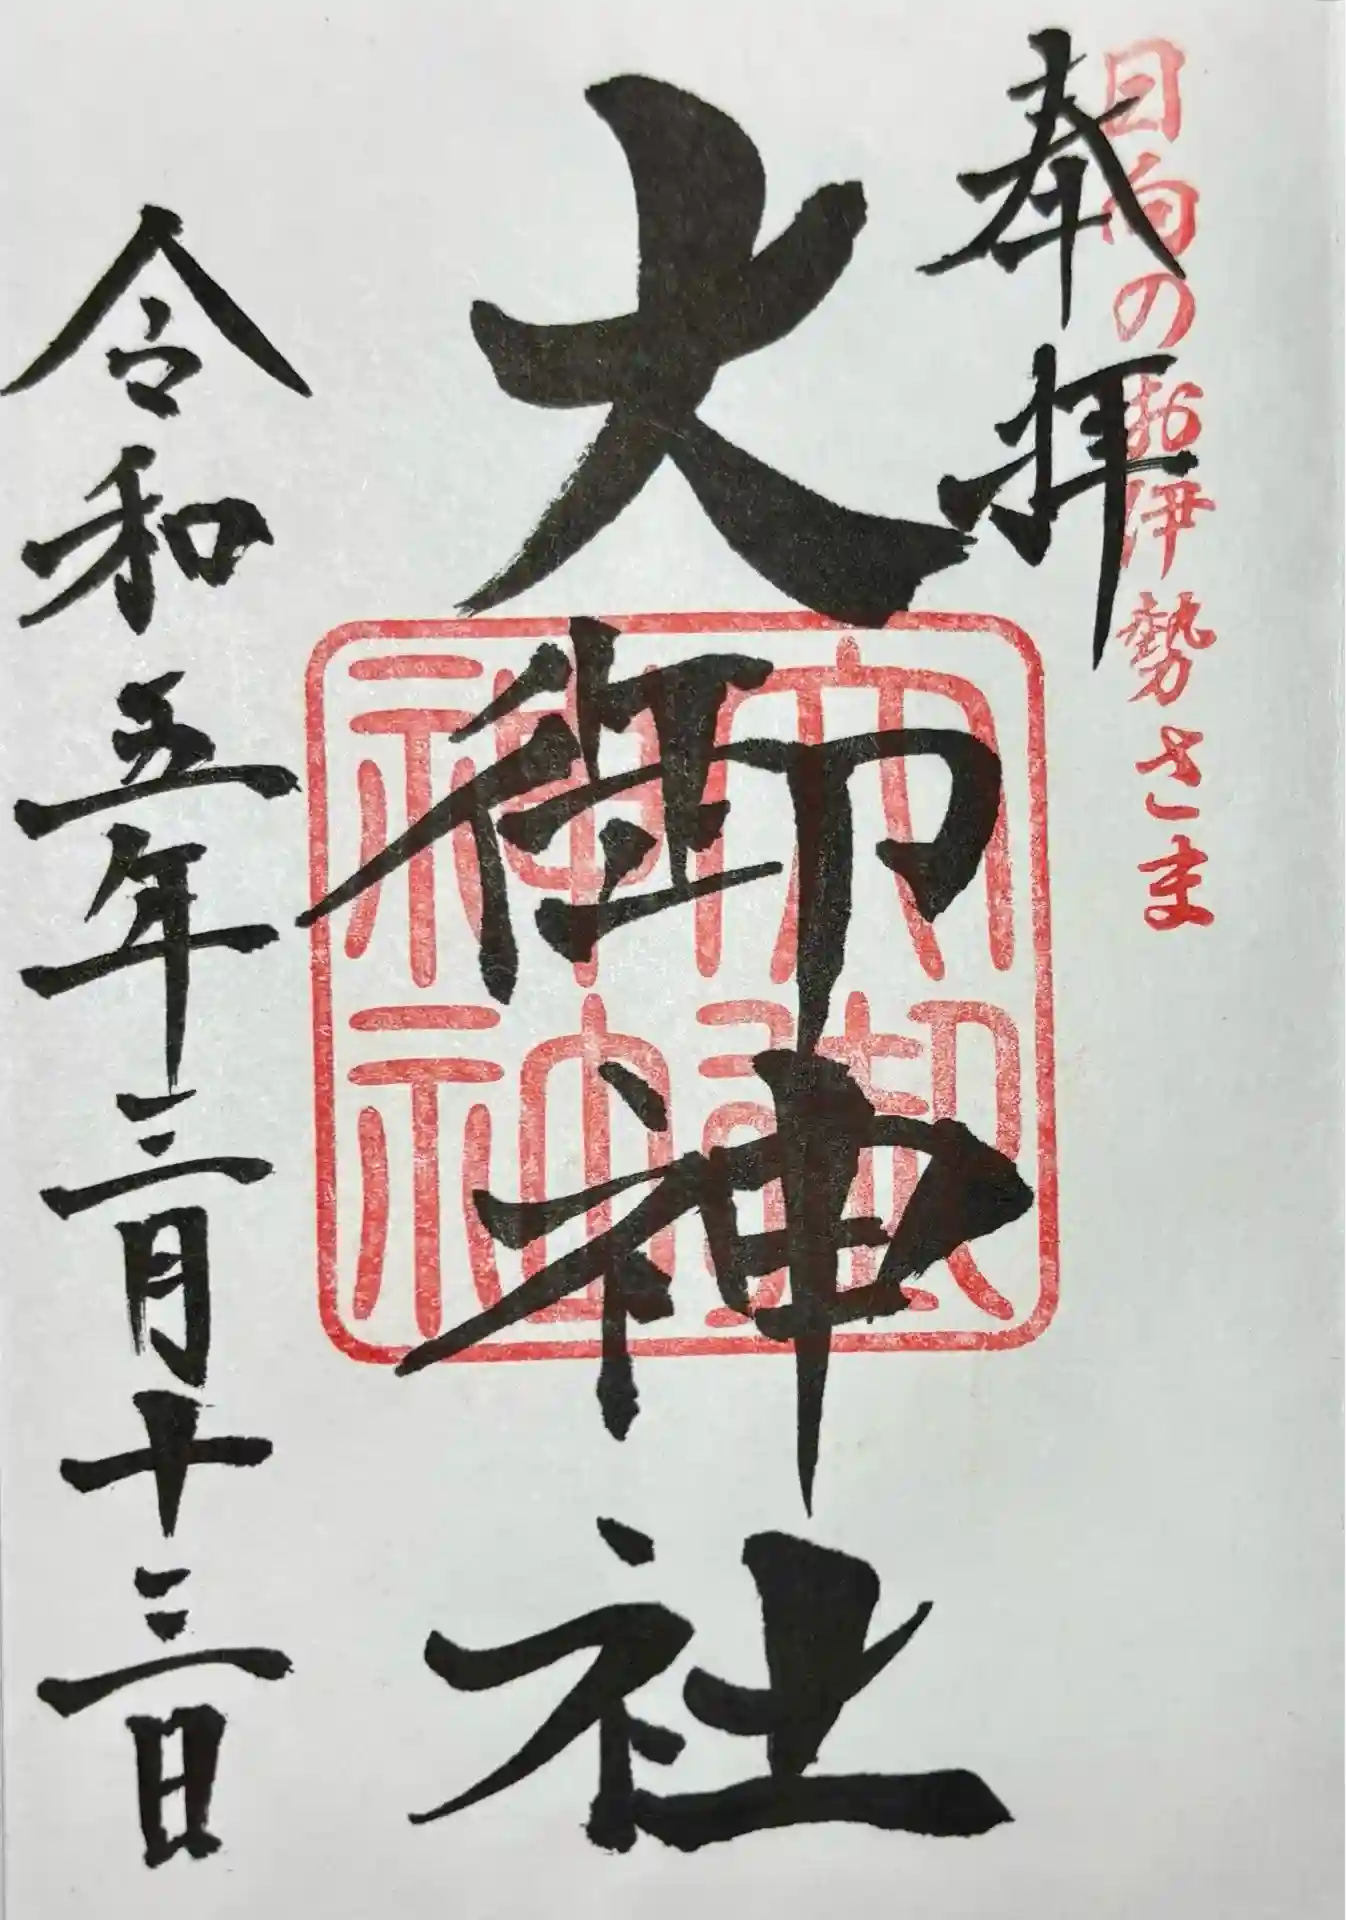 日向のお伊勢さま
奉拝
大御神社
令和五年三月十三日